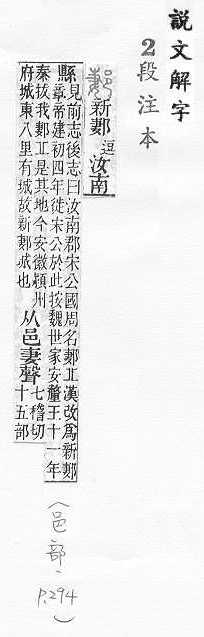 說文解字
2段注本
郪 新郪 逗 汝南
縣見前志後志曰汝南郡宋公國周名郪丘漢改爲新郪
章帝建初四年徙宋公於此按魏世家安釐王十一年
秦拔我郪丘是其地今安徽潁州
府城東八里有城故新郪城也
从邑妻聲
七稽切
十五部
(邑部、P.294)